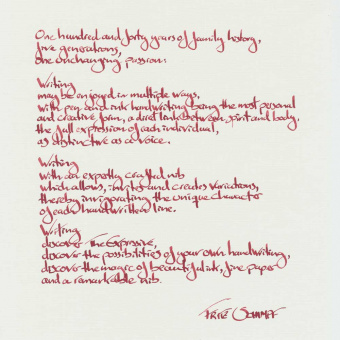 One hundred and forty years of family history,
five generations,
one unchanging passion:
Writing
may be enjoyed in multiple ways,
with pen and ink handwriting being the most personal
and creative form, a direct link between spirit and body,
the full expression of each individual,
as distinctive as a voice.
Writing
with an expertly crafted nib
which allows, invites and creates variations,
thereby invigorating the unique character
of each handwritten line.
Writing
discover the expressive,
discover the possibilities of your own handwriting,
discover the magic of beautiful ink, fine paper
and a remarkable nib.